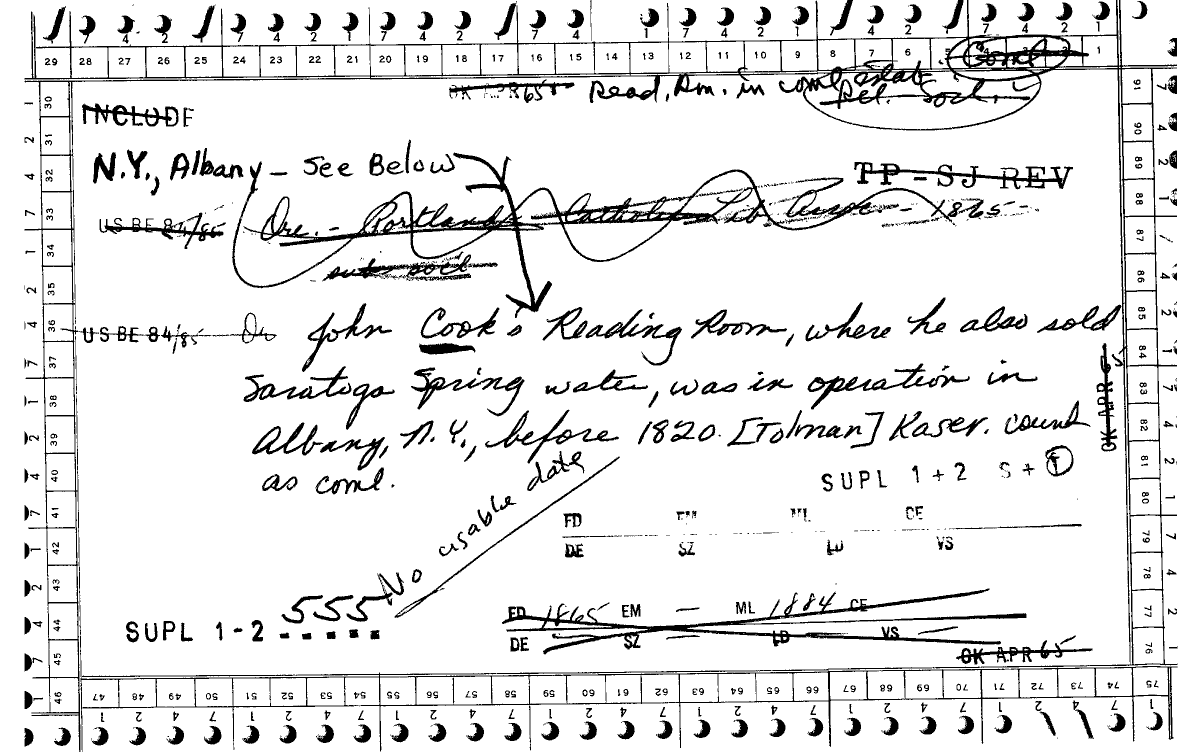 29 28 27 26 25 24 23 22 21 20 19 18 17 16 15 14 13 12 11 10 9 8 7 6 5 4 3 2 1
Coml
OK APR 65 Read. Rm. in coml estab.
Rel. Soci.
INCLUDE
N.Y., Albany – See Below
TP – SJ REV
US BE 84/85 Ore. – Portland – Catholic Lib. Assn. – 1865 –
sub soci
US BE 84/85 Or John Cook's Reading Room, where he also sold
Saratoga Spring water, was in operation in
Albany, N.Y., before 1820. [Tolman] Kaser. count
as coml.
OK APR 65
No usable date
SUPL 1 + 2 S + T
FD EM ML CE
DE SZ LD VS
555
SUPL 1-2
FD 1865 EM — ML 1884 CE
DE — SZ — LD — VS —
OK APR 65
30 31 32 33 34 35 36 37 38 39 40 41 42 43 44 45 46
47 48 49 50 51 52 53 54 55 56 57 58 59 60 61 62 63 64 65 66 67 68 69 70 71 72 73 74 75
76 77 78 79 80 81 82 83 84 85 86 87 88 89 90 91